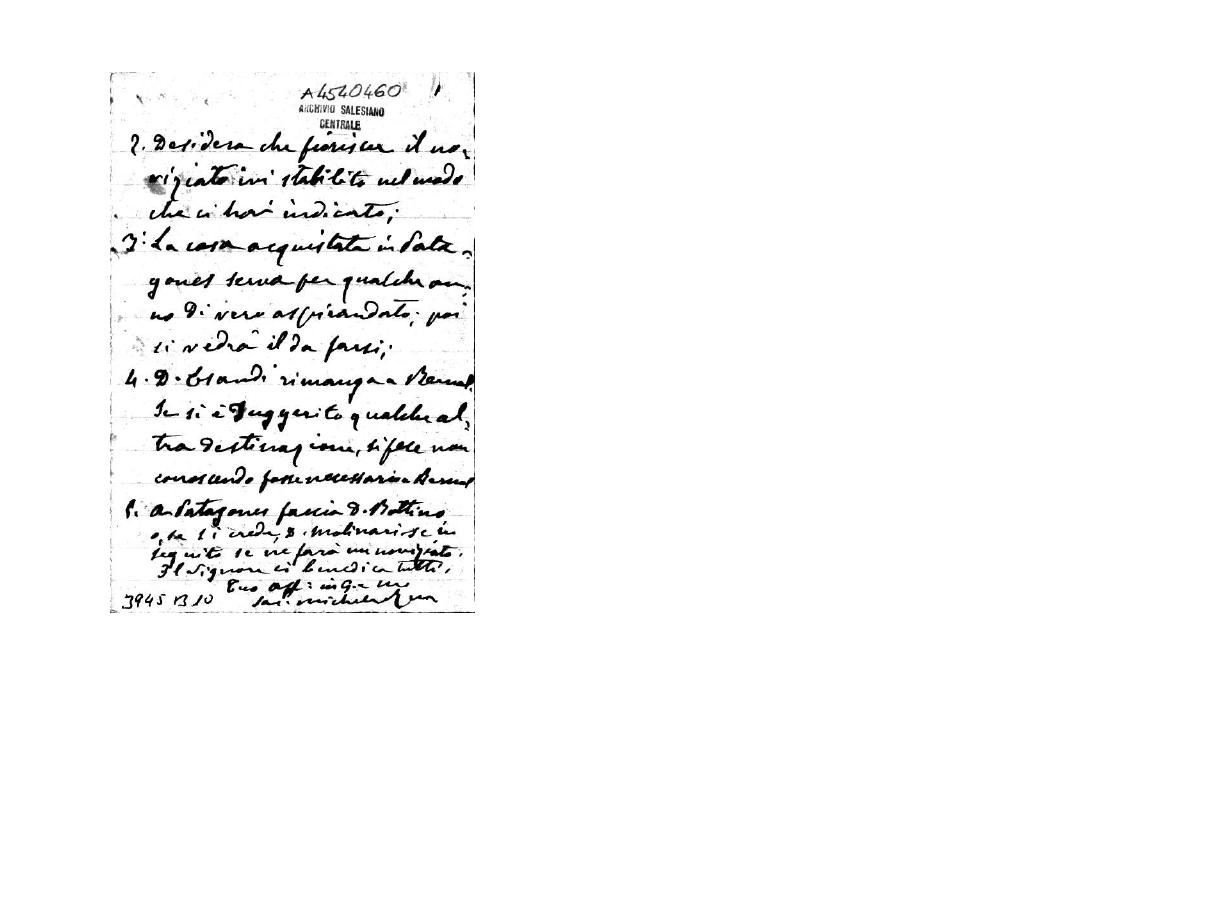 A4540460
ARCHIVIO SALESIANO
CENTRALE
2. Desidera che fiorisca il no-
viziato ivi stabilito nel modo
che ci hai indicato;
3. La casa acquistata in Pata-
gones serva per qualche an-
no di vero aspirandato; poi
si vedrà il da farsi;
4. D. rimanga a Bernal.
Se si è suggerito qualche al-
tra destinazione, si fece non
conoscendo fosse necessario a Bernal
5. A Patagones faccia D. Bottino
o, se si crede, D. Molinari. Se in
seguito se ne farà un noviziato.
Il Signore ci benedica tutti.
Tuo aff: in G. e M.
Sac. Michele Rua
3945 B 10